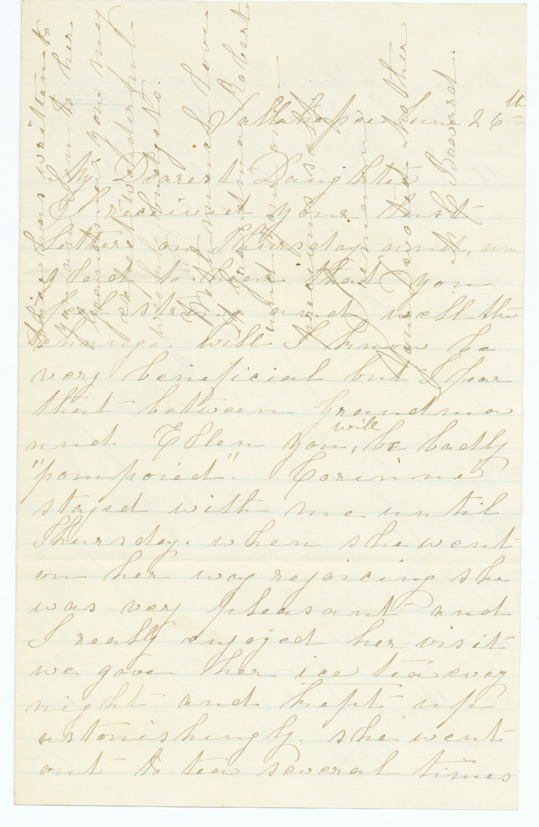 Tallahassee June 26th
My Dearest Daughter
I received your first
letter on Thursday and am
glad to hear that you
feel strong and well the
change will I know be
very beneficial but I fear
that between Grandma
and Ellen you will be badly
"pompoied". Corinne
stayed with me until
Thursday. when she went
on her way rejoicing she
was very pleasant and
I really enjoyed her visit
we gave her ice tea evey
night and kept up
astonishingly. she went
out to tea several times
has written to
to her
you my
wonderful
With much love
Robert
and
your
devoted Mother
Bernard.